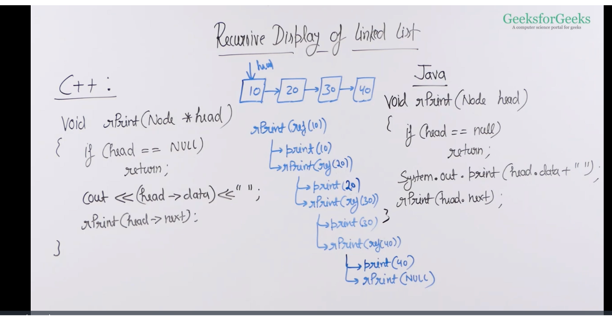 GeeksforGeeks
A computer science portal for geeks
Recursive Display of Linked List
C++ :
void rPrint(Node *head)
{ if (head == NULL)
return;
cout << (head → data) << " ";
rPrint(head → next);
}
head
10 → 20 → 30 → 40
rPrint(ref(10))
→ print(10)
→ rPrint(ref(20))
→ print(20)
→ rPrint(ref(30))
→ print(30)
→ rPrint(ref(40))
→ print(40)
→ rPrint(NULL)
Java
void rPrint(Node head)
{ if (head == null)
return;
System.out.print(head.data + " ");
rPrint(head.next);
}